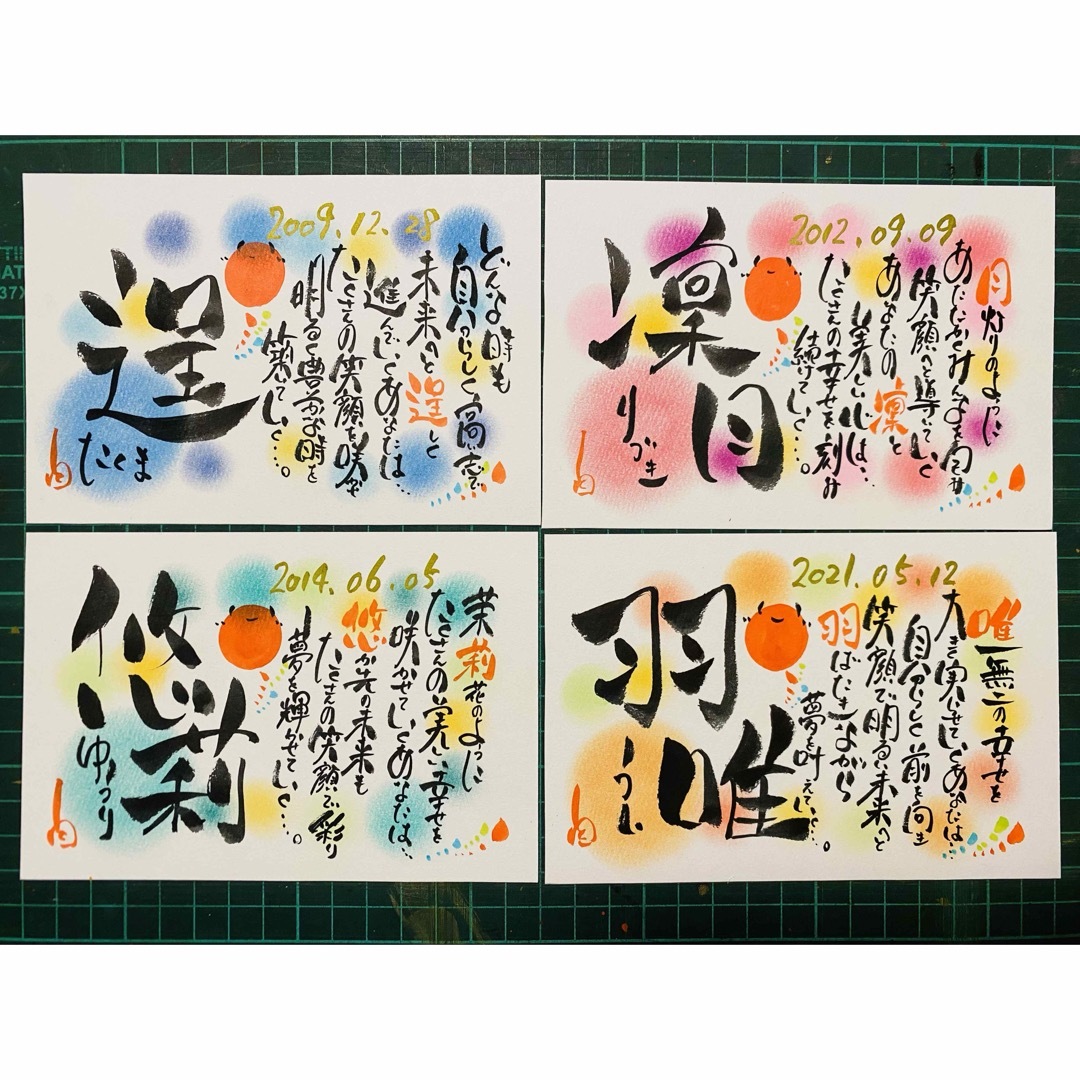 2009.12.28
逞
たくま
どんな時も
自分らしく高い志で
未来へと逞しく
進んでいくあなたは…
たくさんの笑顔を咲かせ
明るく豊かな時を
築いていく…。
2012.09.09
凜月
りづき
月灯りのように
あたたかくみんなを向かせ
笑顔へと導いていく
あなたの凜と
美しい心は、
たくさんの幸せを刻み
続けていく…。
2014.06.05
悠莉
ゆうり
茉莉花のように
たくさんの美しい幸せを
咲かせていくあなたは…
悠か先の未来も
たくさんの笑顔で彩り
夢を輝かせていく…。
2021.05.12
羽唯
うい
唯一無二の幸せを
大きく実らせていくあなたは…
自分らしく前を向き
笑顔で明るい未来へと
羽ばたきながら
夢を叶えていく…。